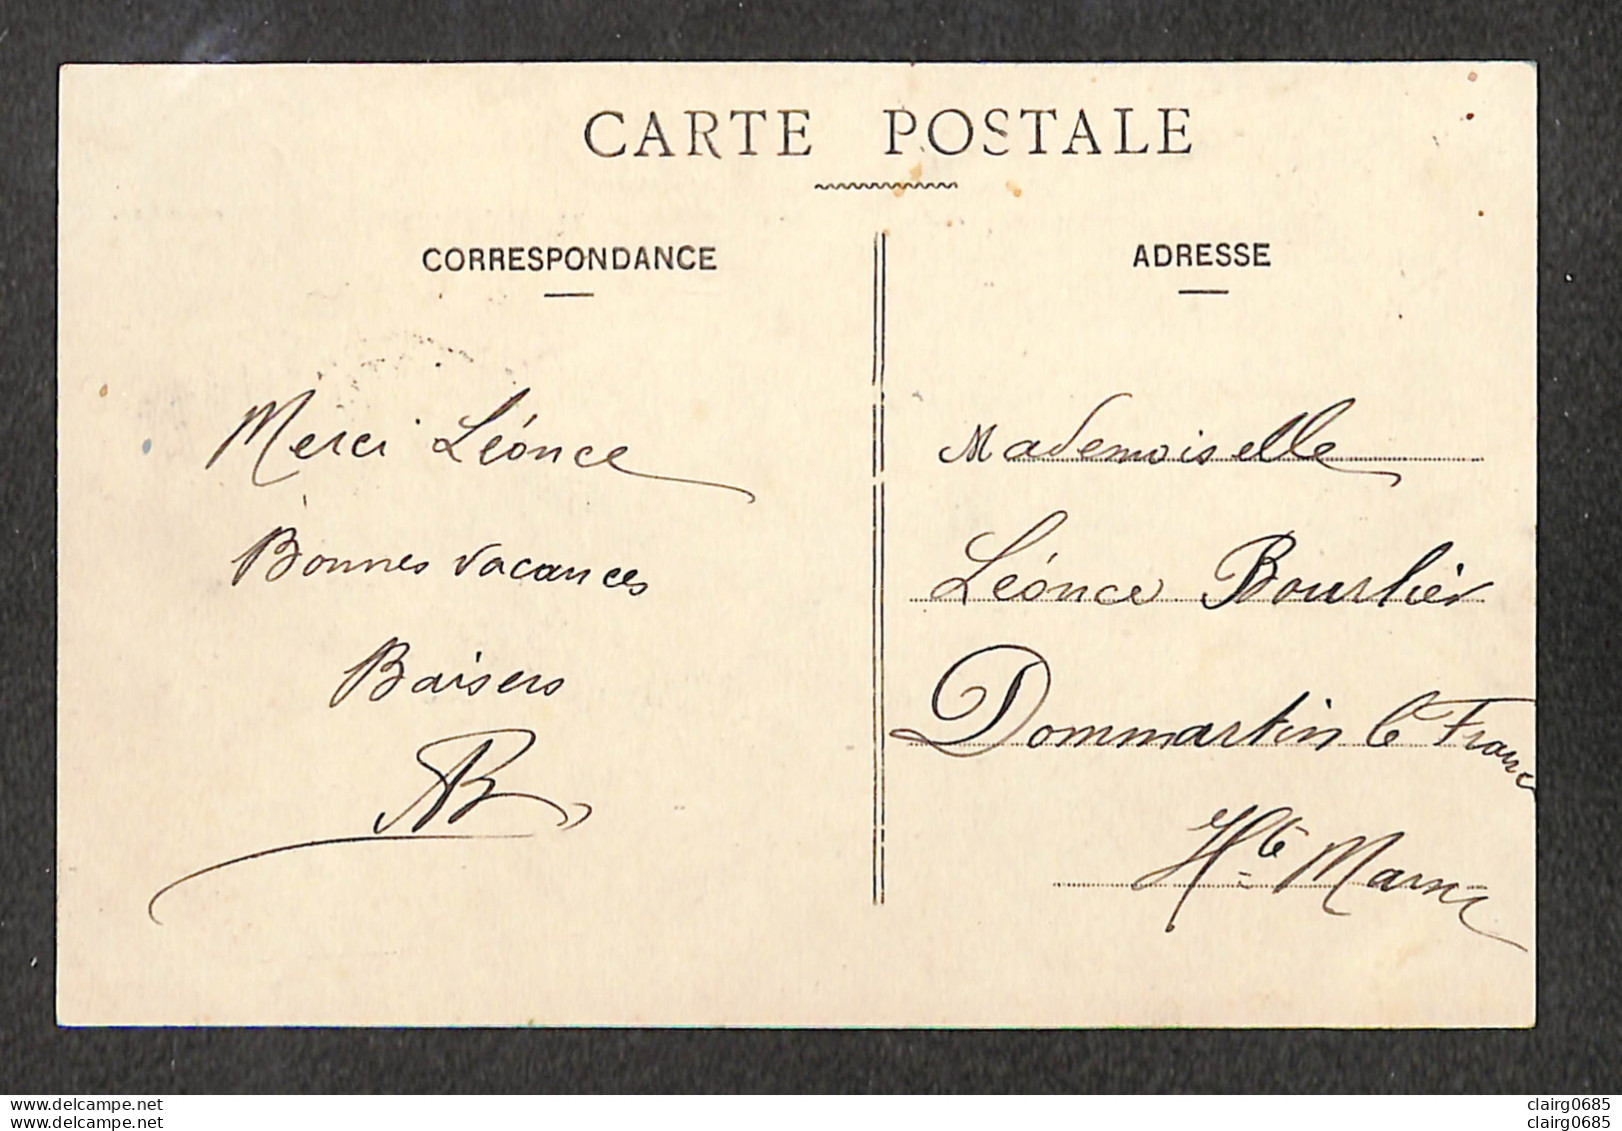 CARTE POSTALE
CORRESPONDANCE
Merci Léonce
Bonnes vacances
Baisers
AB
ADRESSE
Mademoiselle
Léonce Bourlier
Dommartin le Franc
Hte Marne
www.delcampe.net
clairg0685
clairg0685